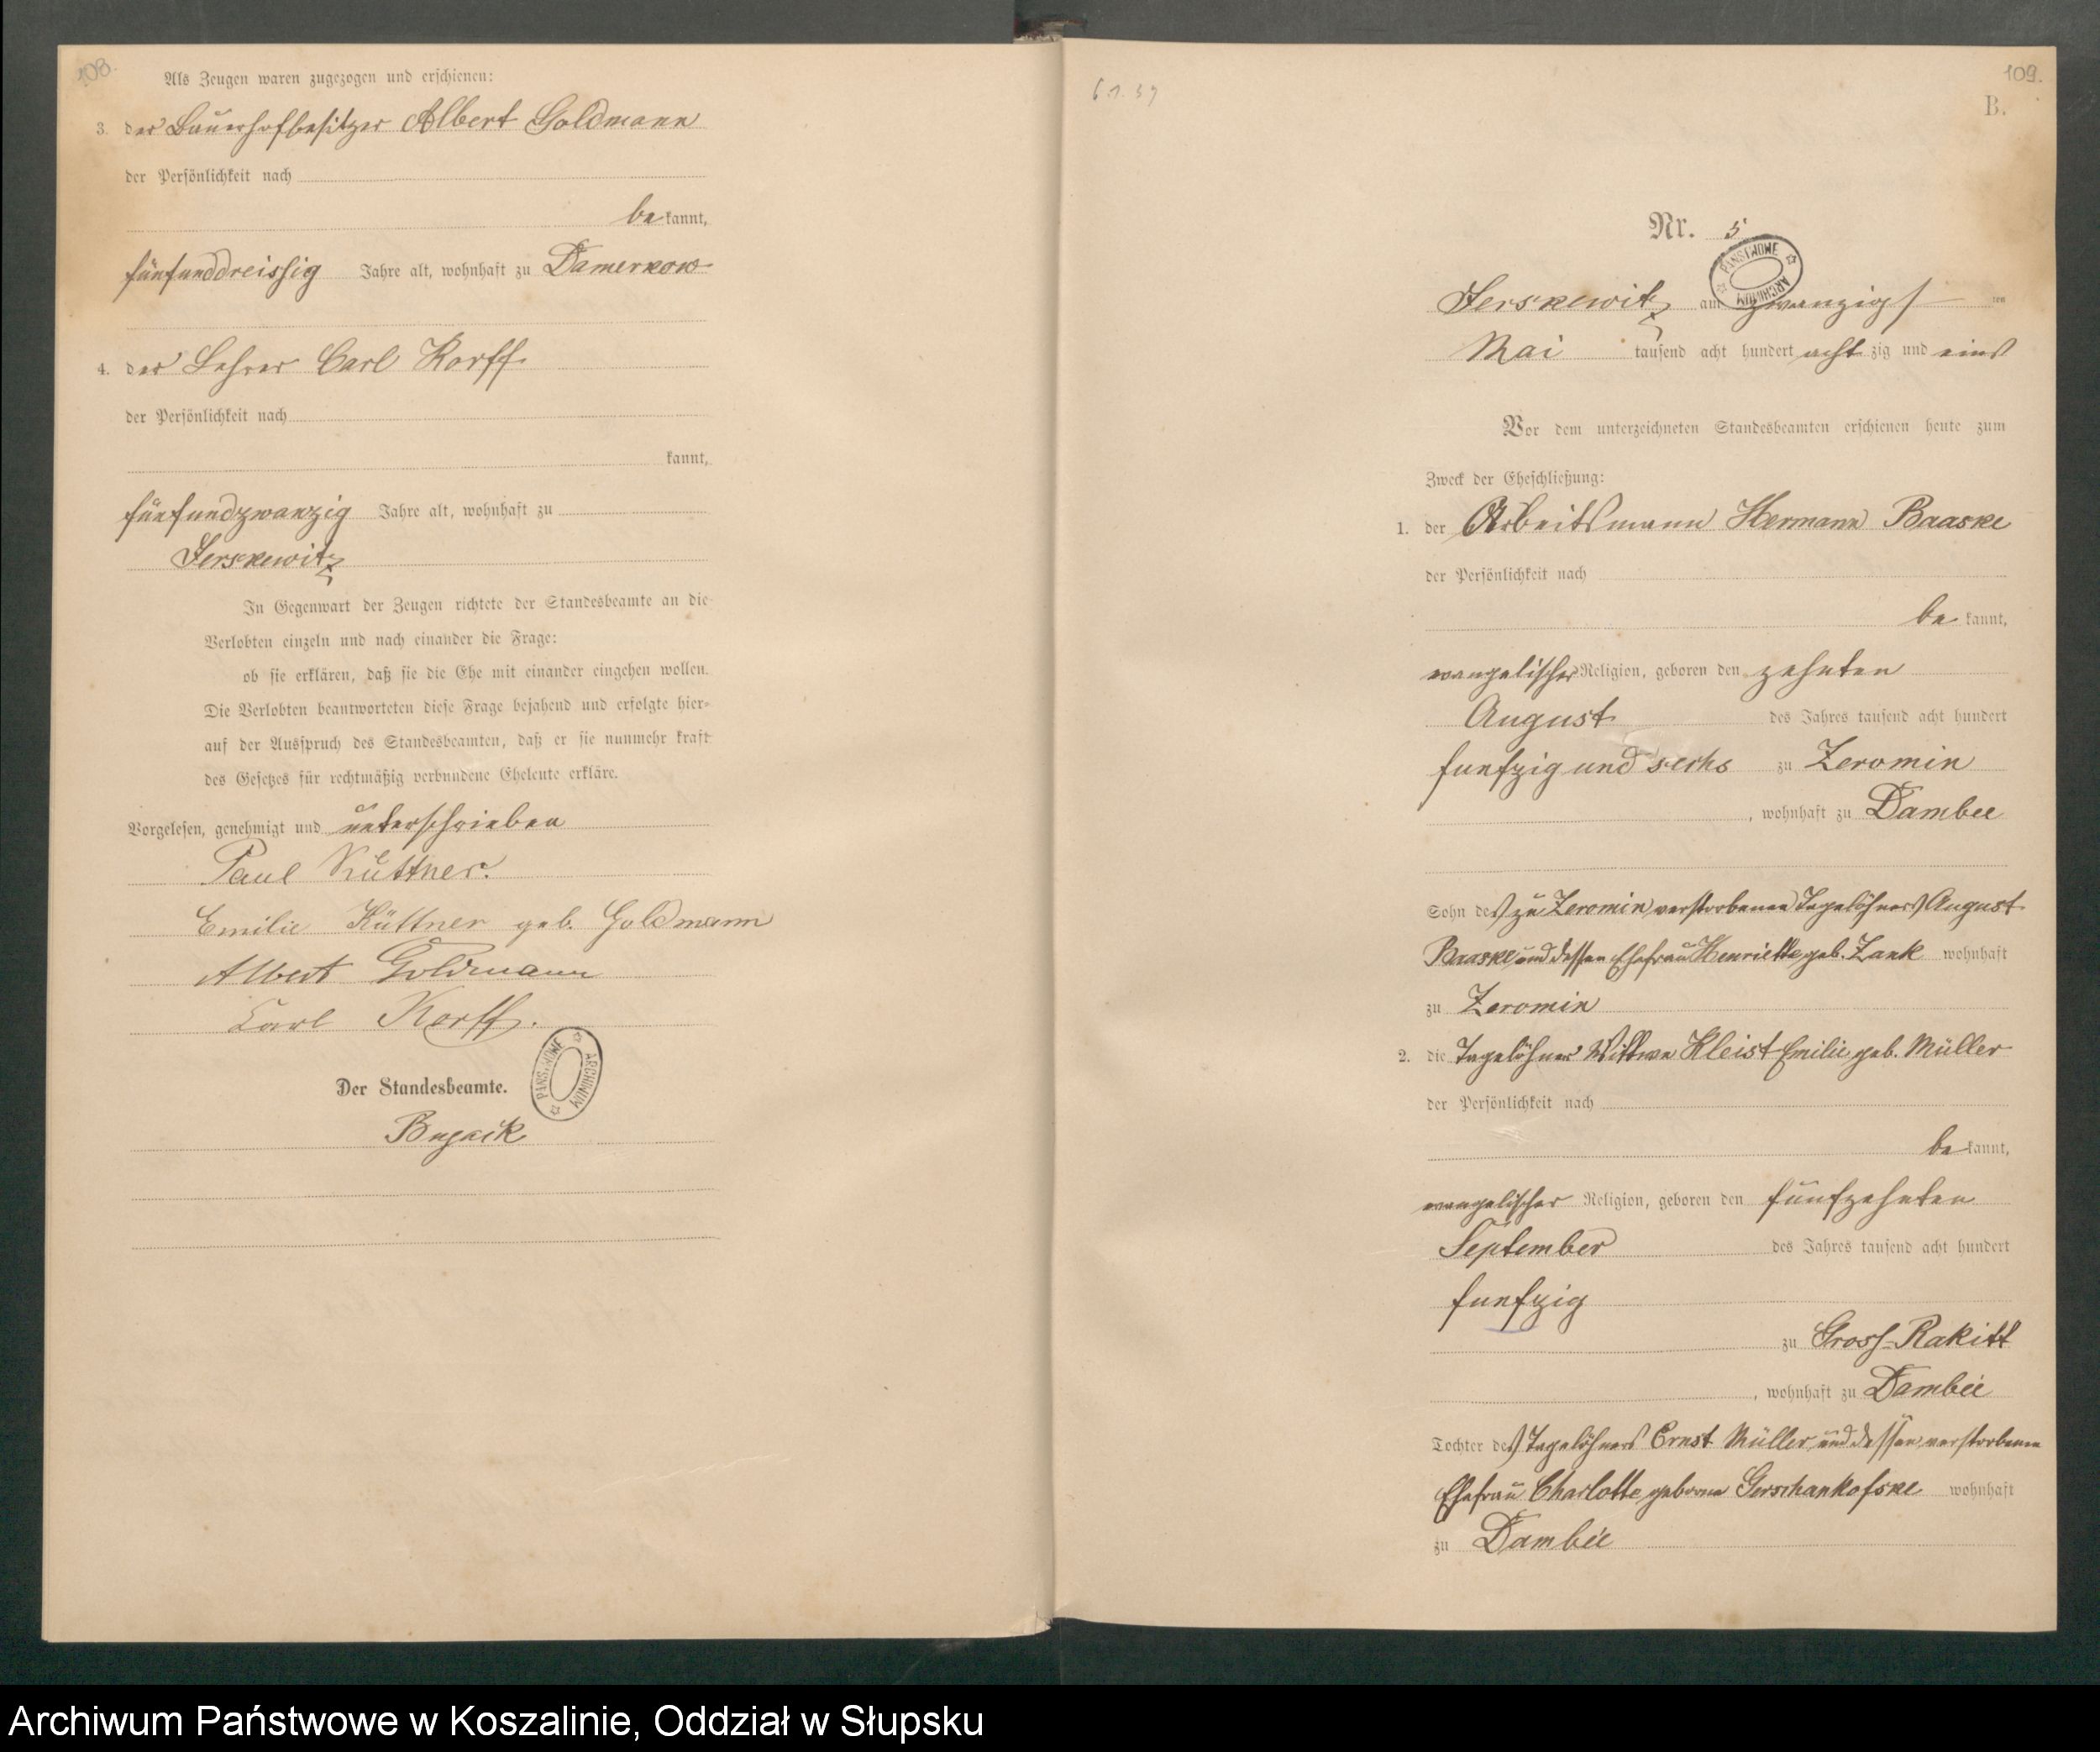 108.
Als Zeugen waren zugezogen und erschienen:
3. der Bauerhofbesitzer Albert Goldmann
der Persönlichkeit nach
be kannt,
fünfunddreissig Jahre alt, wohnhaft zu Damerkow
4. der Lehrer Carl Korff
der Persönlichkeit nach
kannt,
fünfundzwanzig Jahre alt, wohnhaft zu
Jerskewitz
In Gegenwart der Zeugen richtete der Standesbeamte an die
Verlobten einzeln und nach einander die Frage:
ob sie erklären, daß sie die Ehe mit einander eingehen wollen.
Die Verlobten beantworteten diese Frage bejahend und erfolgte hier-
auf der Ausspruch des Standesbeamten, daß er sie nunmehr kraft
des Gesetzes für rechtmäßig verbundene Eheleute erkläre.
Vorgelesen, genehmigt und unterschrieben
Paul Küttner.
Emilie Küttner geb. Goldmann
Albert Goldmann
Carl Korff.
PANSTWOWE ARCHIWUM
Der Standesbeamte.
109.
B.
Nr. 5
PANSTWOWE ARCHIWUM
Jerskewitz am zwanzigs ten
Mai tausend acht hundert acht zig und eins
Vor dem unterzeichneten Standesbeamten erschienen heute zum
Zweck der Eheschließung:
1. der Arbeitsmann Hermann Baaske
der Persönlichkeit nach
be kannt,
evangelischer Religion, geboren den zehnten
August des Jahres tausend acht hundert
funfzig und sechs zu Zeromin
, wohnhaft zu Dambee
Sohn des zu Zeromin verstorbenen Tagelöhners August
Baaske und dessen Ehefrau Henriette geb. Zank wohnhaft
zu Zeromin
2. die Tagelöhner Wittwe Kleist Emilie, geb. Müller
der Persönlichkeit nach
be kannt,
evangelischer Religion, geboren den fünfzehnten
September des Jahres tausend acht hundert
funfzig
zu Gross-Rakitt
, wohnhaft zu Dambee
Tochter des Tagelöhners Ernst Müller und dessen verstorbenen
Ehefrau Charlotte geborne Gerschankofske wohnhaft
zu Dambee
Archiwum Państwowe w Koszalinie, Oddział w Słupsku